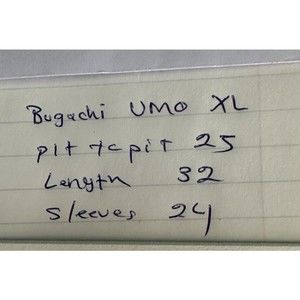 Bugachi UMO XL
pit to pit 25
Length 32
Sleeves 24